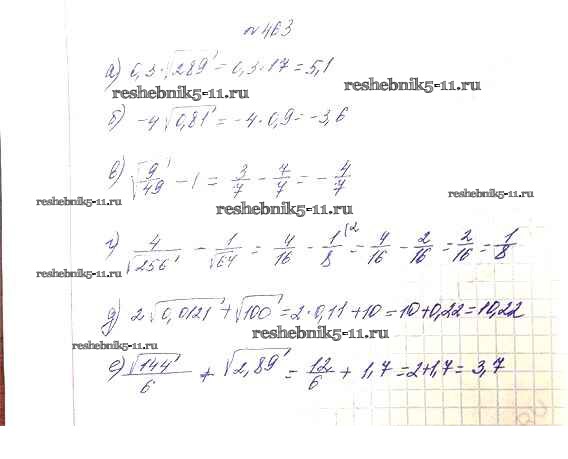 №463
а) 0,3·√289 = 0,3·17 = 5,1
reshebnik5-11.ru reshebnik5-11.ru
б) -4√0,81 = -4·0,9 = -3,6
в) √9/49 - 1 = 3/7 - 7/7 = -4/7
reshebnik5-11.ru reshebnik5-11.ru reshebnik5-11.ru
г) 4/√256 - 1/√64 = 4/16 - 1/8 (2 = 4/16 - 2/16 = 2/16 = 1/8
reshebnik5-11.ru reshebnik5-11.ru
д) 2·√0,0121 + √100 = 2·0,11 + 10 = 10 + 0,22 = 10,22
reshebnik5-11.ru reshebnik5-11.ru
е) √144/6 + √2,89 = 12/6 + 1,7 = 2 + 1,7 = 3,7